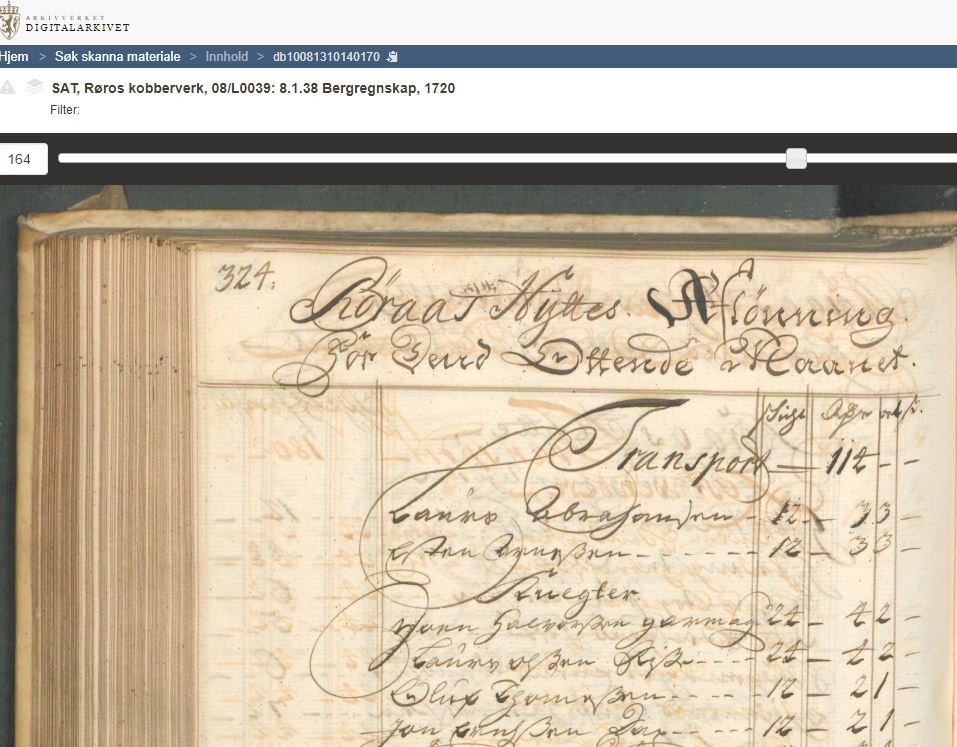 ARKIVVERKET
DIGITALARKIVET
Hjem > Søk skanna materiale > Innhold > db10081310140170
SAT, Røros kobberverk, 08/L0039: 8.1.38 Bergregnskap, 1720
Filter:
164
324.
Röraas Hÿttes Aflönning
För Ottende Maanet.
Transport 114 - -
Laurs Abrahamsen - 12 - 3 3 -
Esten - 12 - 3 3 -
Knegter
Joen Halvorsen 24 - 4 2 -
Laurs Olsen 24 - 4 2 -
Oluf Thomesen - 12 - 2 1 -
Jon 12 - 2 1 -